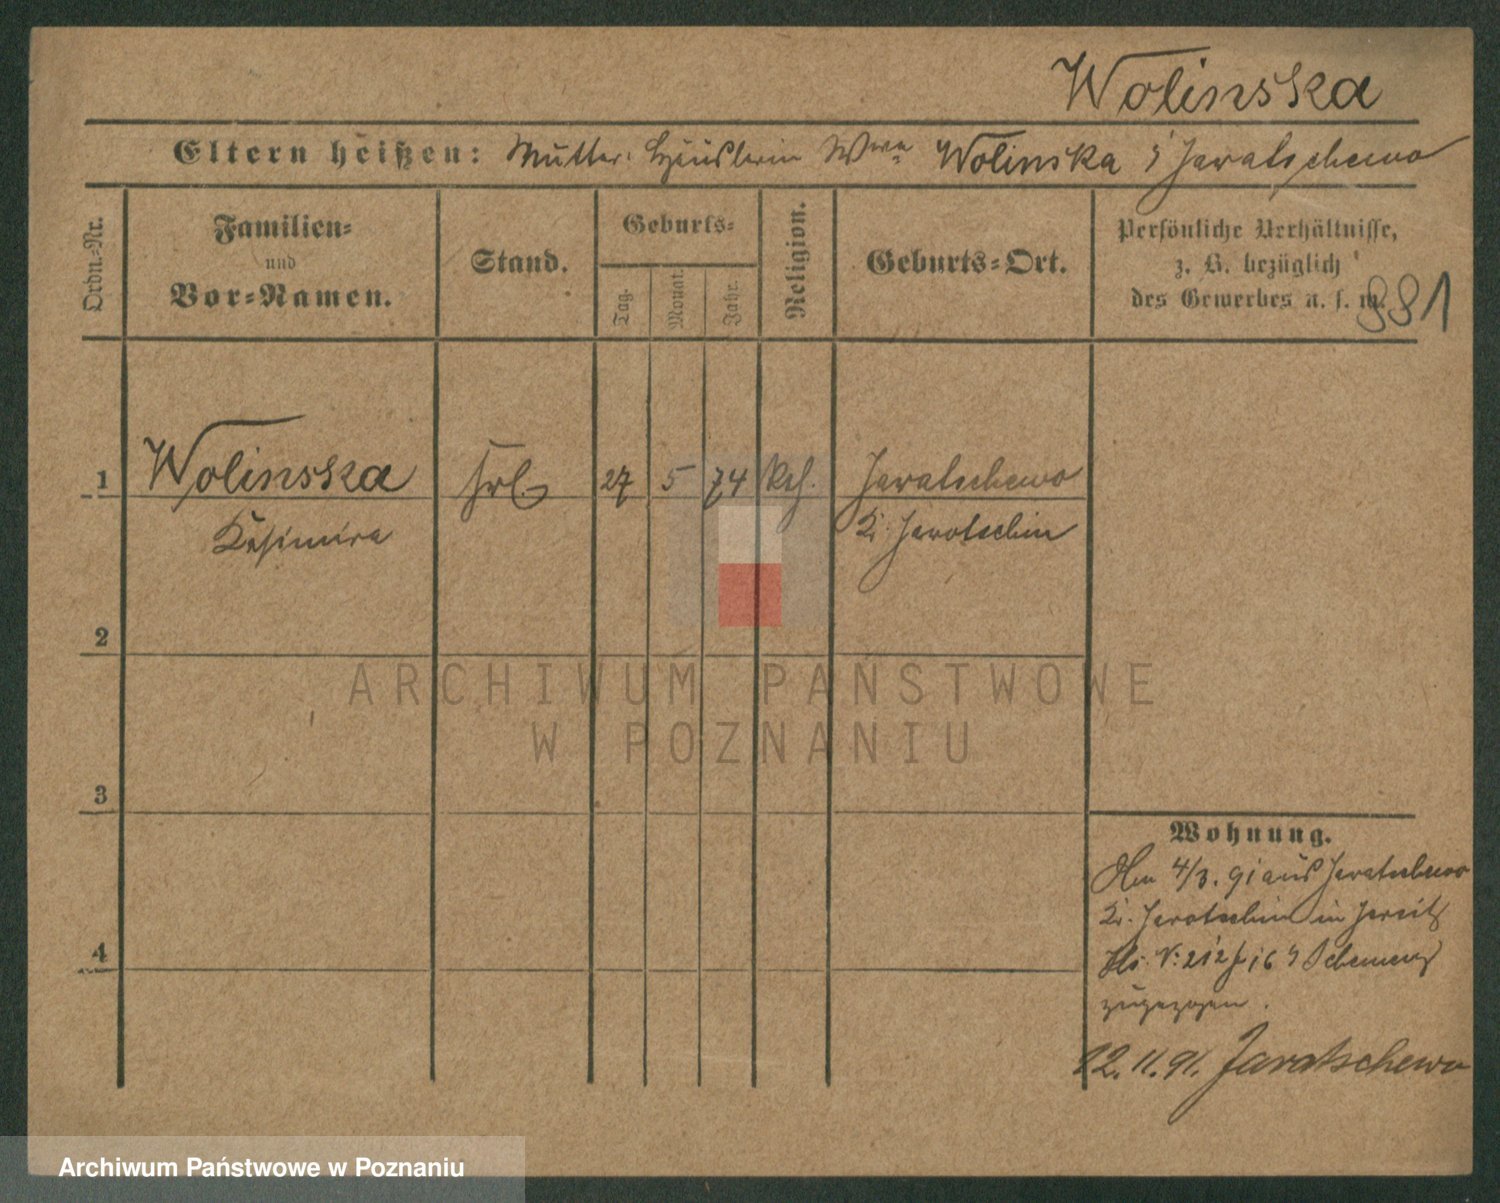 Wolinska
Eltern heißen: Mutter: Häuslerin Wwe Wolinska Jaratschewo
Ordn.-Nr.
Familien-
und
Vor-Namen.
Stand.
Geburts-
Tag.
Monat.
Jahr.
Religion.
Geburts-Ort.
Persönliche Verhältnisse,
z. B. bezüglich
des Gewerbes u. s. w.
881
1
Wolinska
Kasimira
frl.
27
5
74
kth.
Jaratschewo
Kr. Jarotschin
2
3
4
Wohnung.
4/3. 91 aus Jaratschewo
Kr. Jarotschin in Jersitz
zugezogen.
22.11.91. Jaratschewo
ARCHIWUM PAŃSTWOWE
W POZNANIU
Archiwum Państwowe w Poznaniu